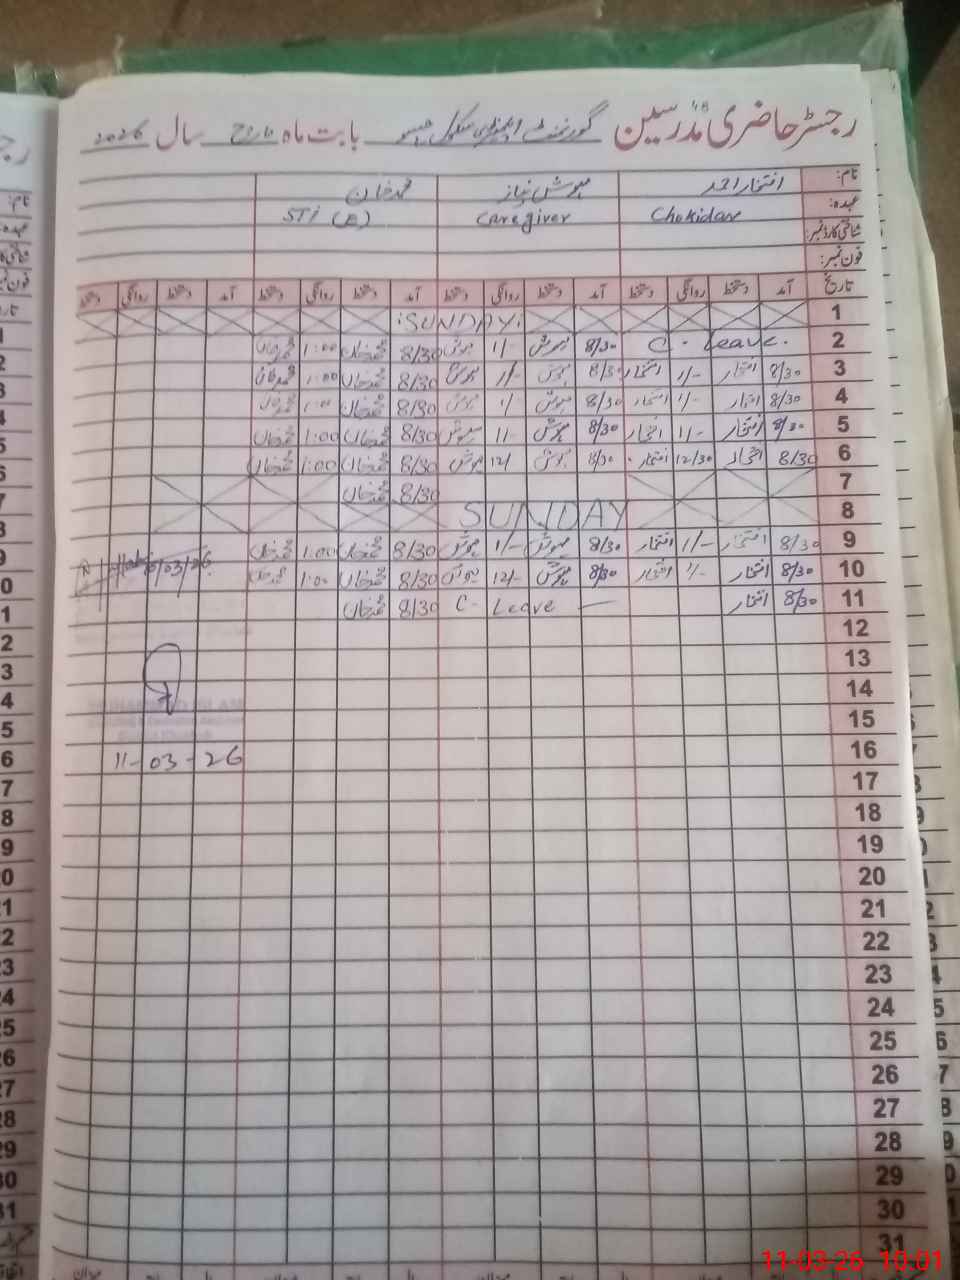 رجسٹر حاضری مدرسین گورنمنٹ ایلیمنٹری سکول بابت ماہ مارچ سال 2026
نام: افتخار احمد مہوش نیاز محمد خان
عہدہ: Chokidar Caregiver STI (E)
شناختی کارڈ نمبر:
فون نمبر:
تاریخ آمد دستخط روانگی دستخط آمد دستخط روانگی دستخط آمد دستخط روانگی دستخط آمد دستخط روانگی دستخط
1 SUNDAY
2 C. Leave. 8/30 مہوش 1/- مہوش 8/30 محمد خان 1:00 محمد خان
3 8/30 افتخار 1/- افتخار 8/30 مہوش 1/- مہوش 8/30 محمد خان 1:00 محمد خان
4 8/30 افتخار 1/- افتخار 8/30 مہوش 1/- مہوش 8/30 محمد خان 1:00 محمد خان
5 8/30 افتخار 1/- افتخار 8/30 مہوش 1/- مہوش 8/30 محمد خان 1:00 محمد خان
6 8/30 افتخار 12/30 افتخار 8/30 مہوش 12/ مہوش 8/30 محمد خان 1:00 محمد خان
7 8/30 محمد خان
8 SUNDAY
9 8/30 افتخار 1/- افتخار 8/30 مہوش 1/- مہوش 8/30 محمد خان 1:00 محمد خان /03/26
10 8/30 افتخار 1/- افتخار 8/30 مہوش 12/- مہوش 8/30 محمد خان 1:00 محمد خان
11 8/30 افتخار C- Leave — 8/30 محمد خان
12
13
14
15
16 11-03-26
17
18
19
20
21
22
23
24
25
26
27
28
29
30
31
11-03-26 10:01